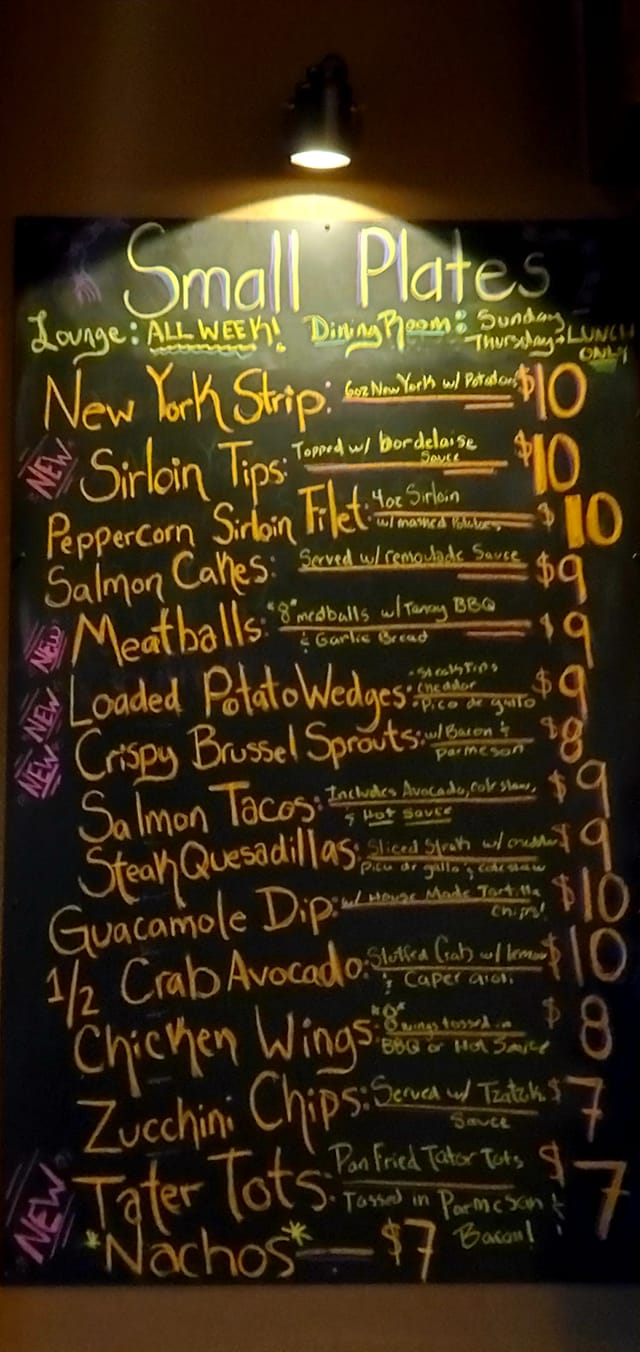 Small Plates
Lounge: ALL WEEK! Dining Room: Sunday
Thursday: LUNCH
ONLY
New York Strip: 6oz New York w/ Potatoes $10
NEW Sirloin Tips: Topped w/ bordelaise
Sauce $10
Peppercorn Sirloin Filet: 4oz Sirloin
w/ mashed Potatoes $10
Salmon Cakes: Served w/ remoulade Sauce $9
NEW Meatballs: "8" meatballs w/ Tangy BBQ
& Garlic Bread $9
NEW Loaded Potato Wedges: -Steak Tips
-Cheddar
-Pico de gallo $9
NEW Crispy Brussel Sprouts: w/ Bacon &
parmeson $8
Salmon Tacos: Includes Avocado, cole slaw,
& Hot Sauce $9
Steak Quesadillas: Sliced Steak w/ cheddar
pico de gallo & cole slaw $9
Guacamole Dip: w/ House Made Tortilla
Chips! $10
1/2 Crab Avocado: Stuffed Crab w/ lemon
& Caper aioli $10
Chicken Wings: "8" wings tossed in
BBQ or Hot Sauce $8
Zucchini Chips: Served w/ Tzatziki
Sauce $7
NEW Tater Tots: Pan Fried Tator Tots
Tossed in Parmesan &
Bacon! $7
*Nachos* $7